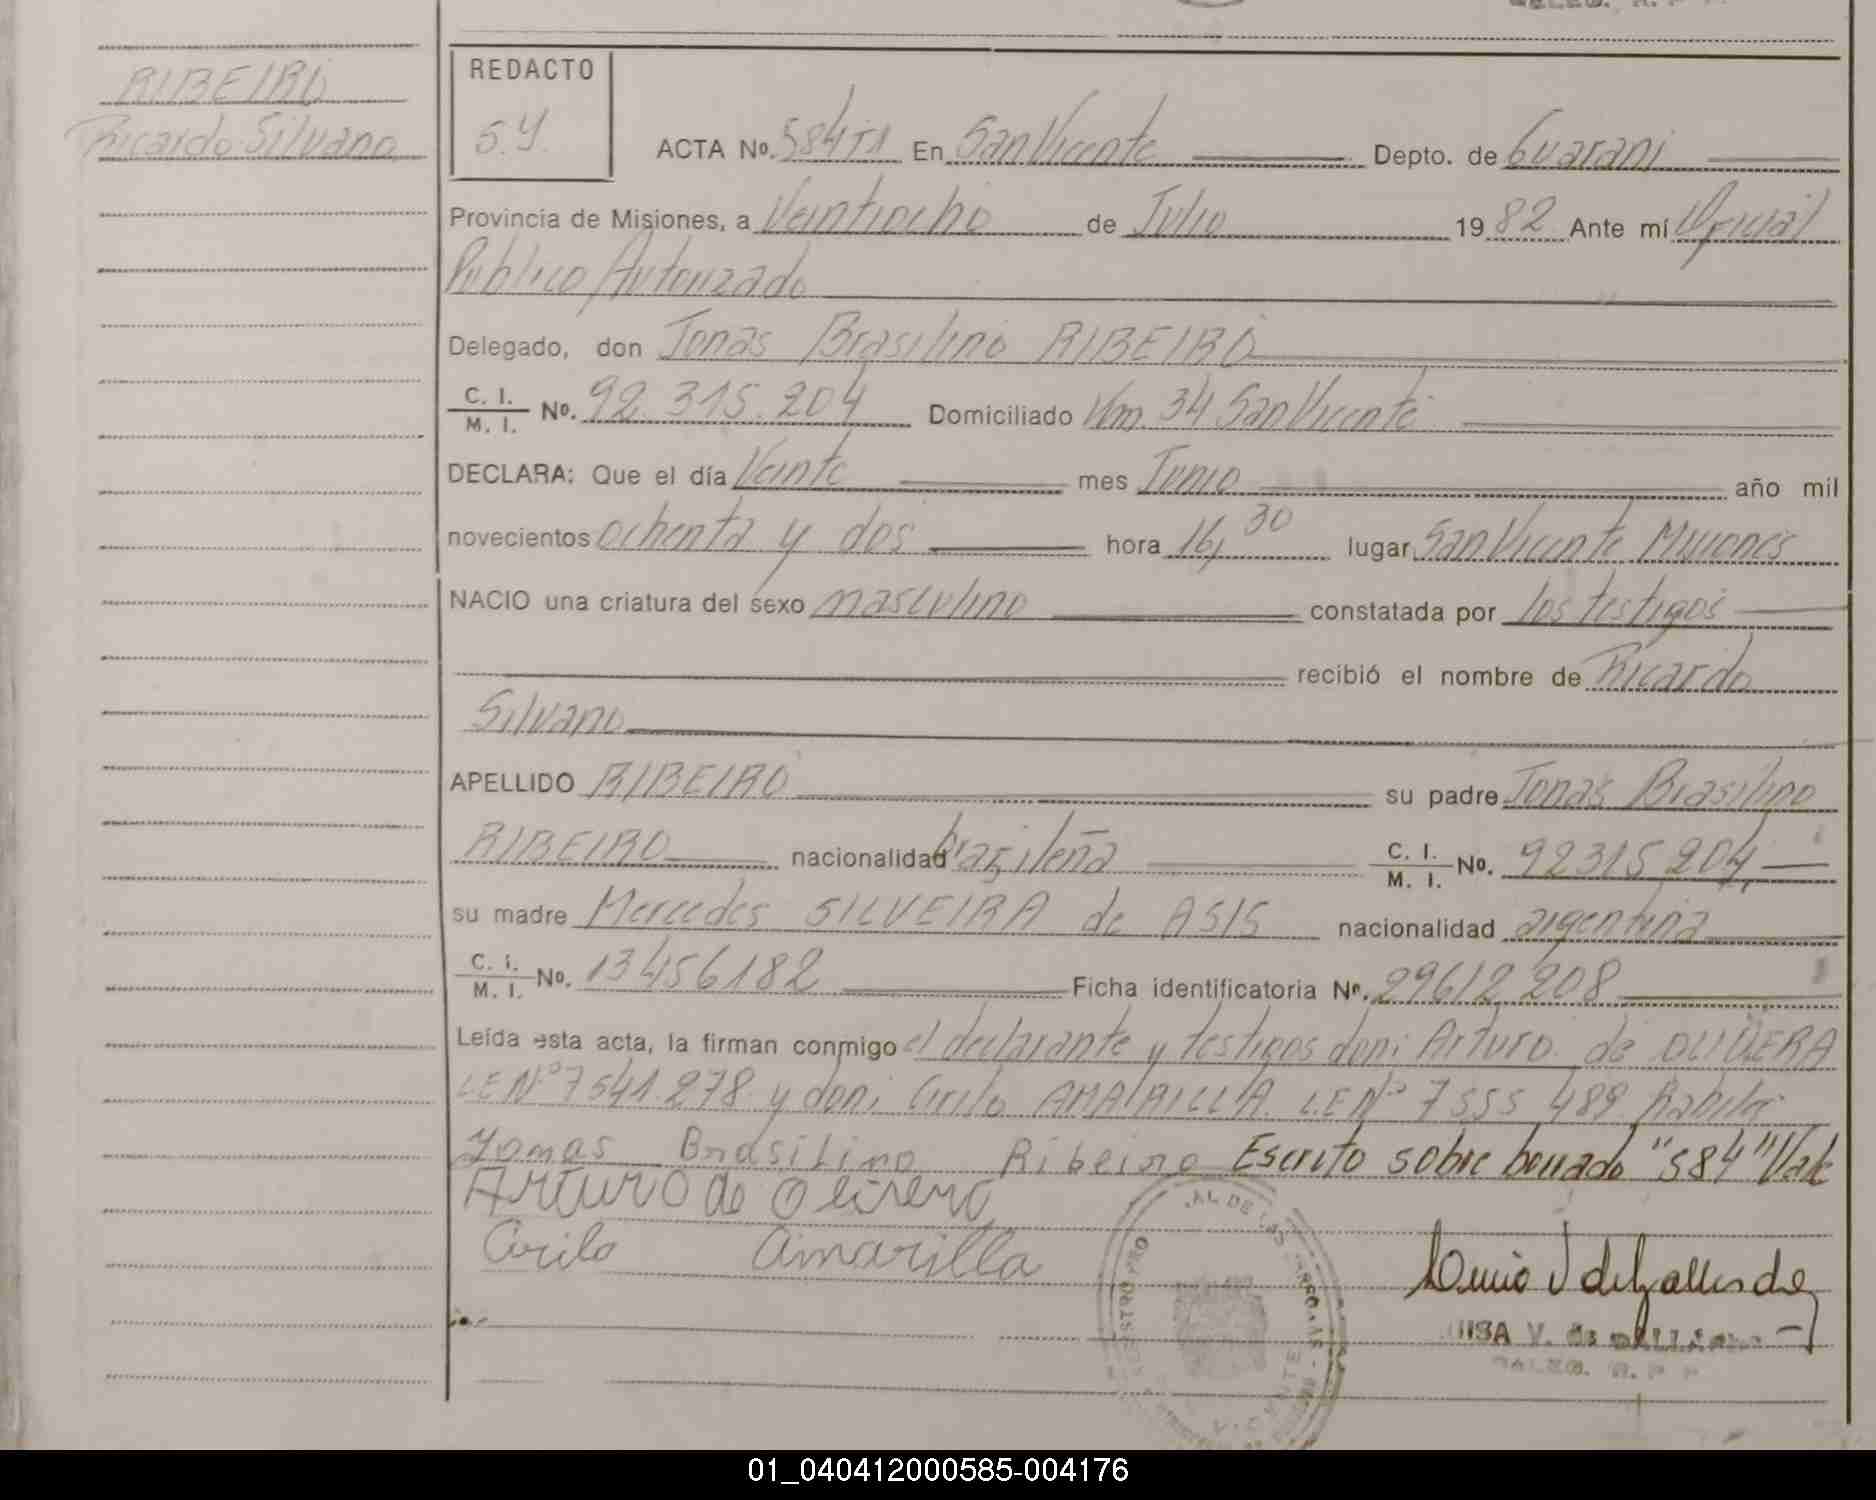 RIBEIRO
Ricardo Silvano
REDACTO
S.Y.
ACTA Nº. 584 T1 En San Vicente Depto. de Guarani
Provincia de Misiones, a Veintiocho de Julio 1982 Ante mí Oficial
Publico Autorizado
Delegado, don Jonas Brasilino RIBEIRO
C. I. / M. I. Nº. 92.315.204 Domiciliado Km. 34 San Vicente
DECLARA: Que el día Veinte mes Junio año mil
novecientos ochenta y dos hora 16,30 lugar San Vicente Misiones
NACIO una criatura del sexo masculino constatada por los testigos
recibió el nombre de Ricardo
Silvano
APELLIDO RIBEIRO su padre Jonas Brasilino
RIBEIRO nacionalidad brasileña C. I. / M. I. Nº. 92315204
su madre Mercedes SILVEIRA de ASIS nacionalidad argentina
C. I. / M. I. Nº. 13456182 Ficha identificatoria Nº. 29612208
Leída esta acta, la firman conmigo el declarante y testigos don: Arturo de OLIVERA
LE Nº 7541.278 y don: Cirilo AMARILLA L.E Nº 7555489 Habiles
Jomas Brasilino Ribeiro Escrito sobre borrado "584" Vale
Arturo de Olivera
Cirilo Amarilla
V. de
01_040412000585-004176